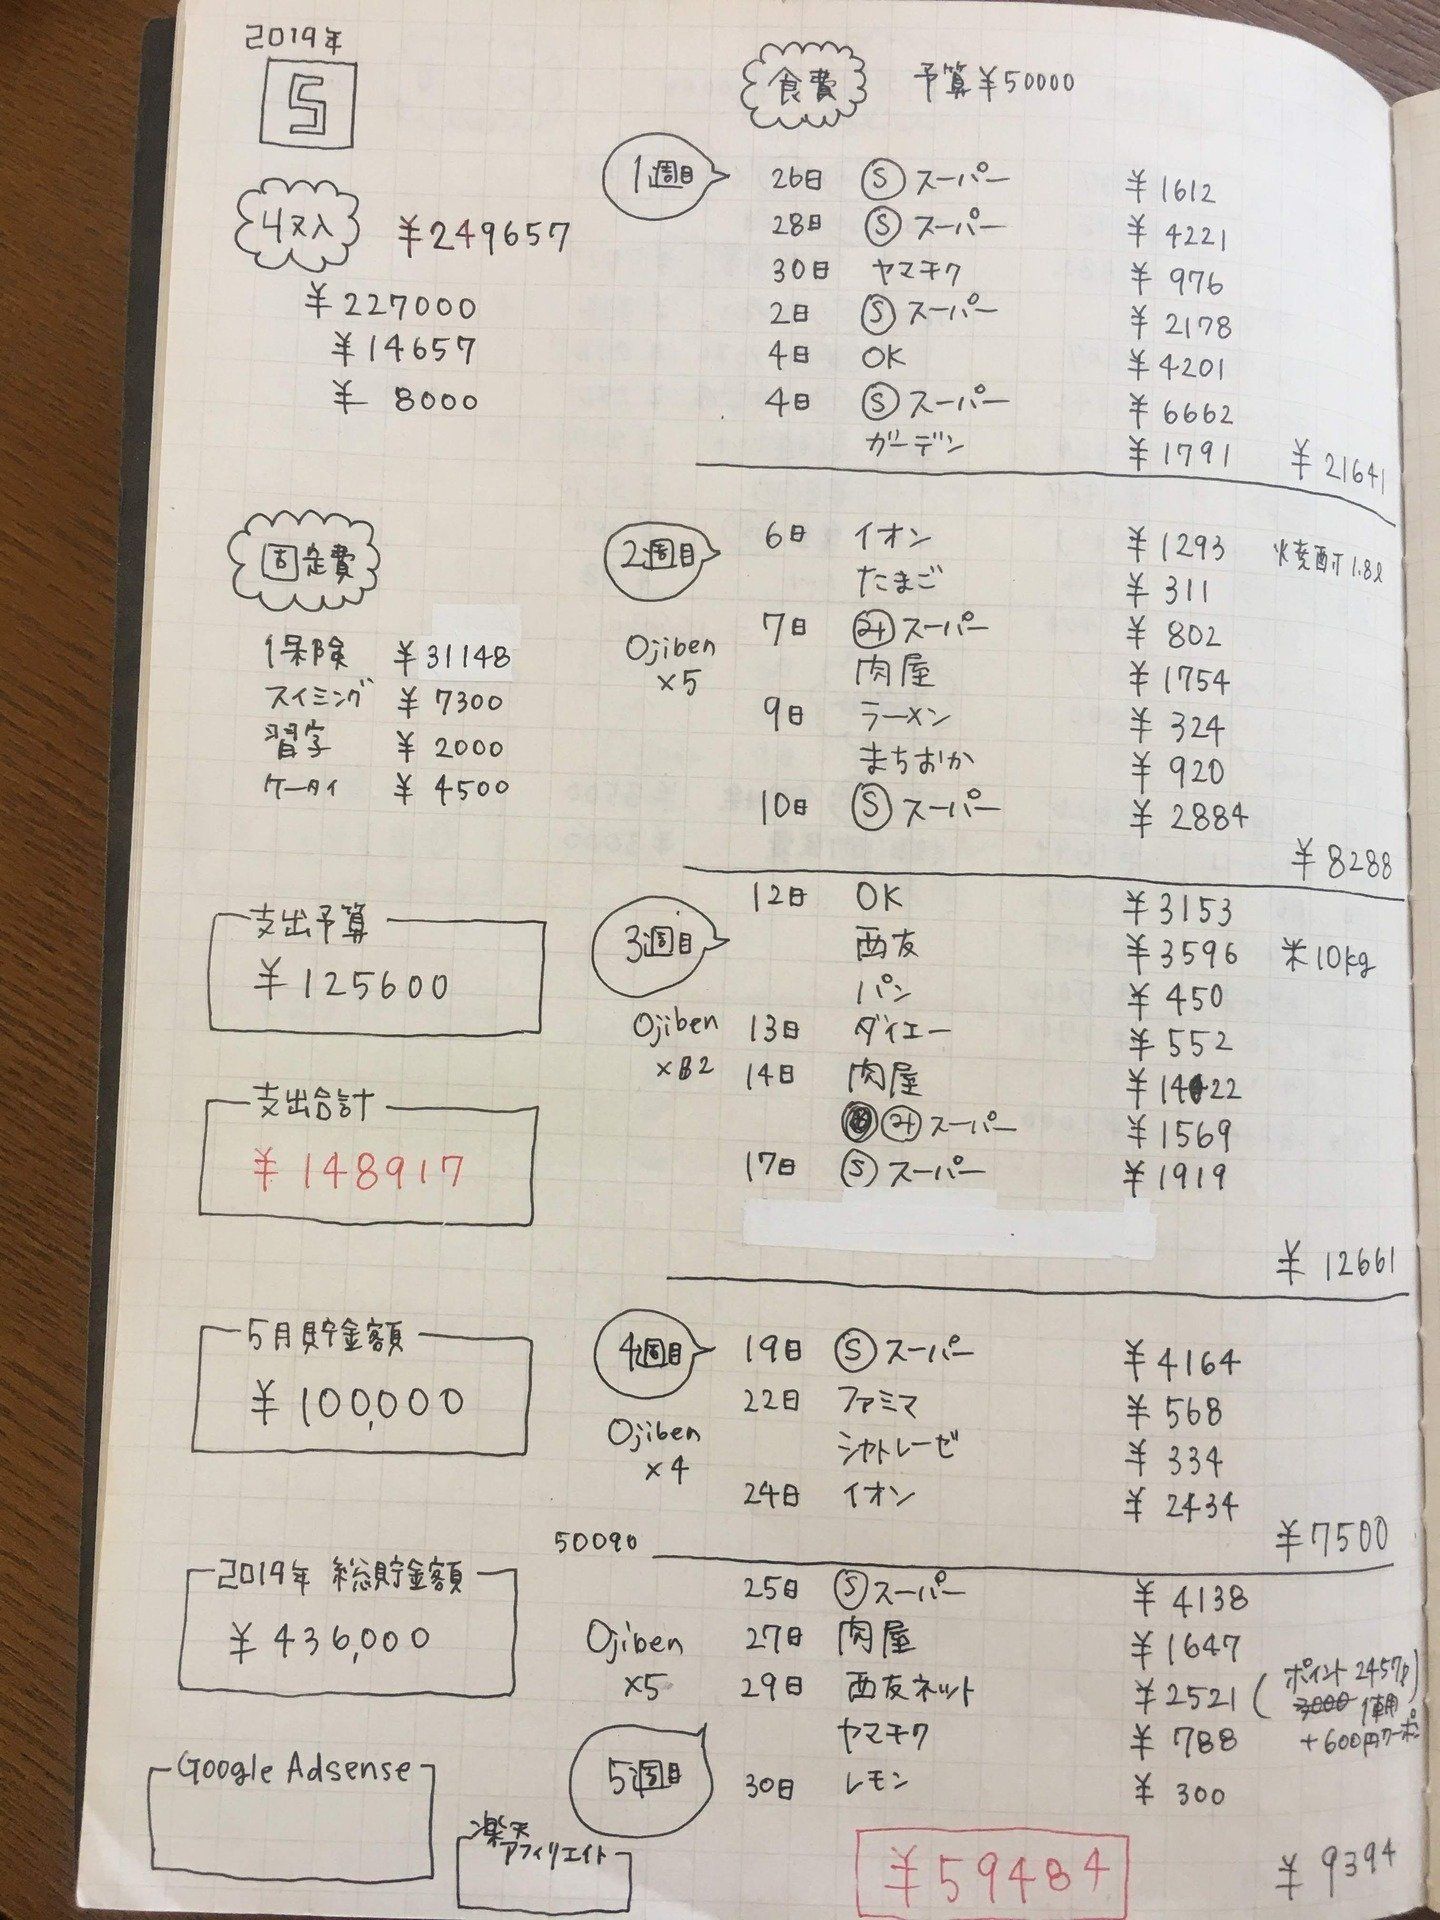 2019年
5
収入 ¥249657
¥227000
¥14657
¥ 8000
固定費
保険 ¥31148
スイミング ¥ 7300
習字 ¥ 2000
ケータイ ¥ 4500
支出予算
¥125600
支出合計
¥148917
5月貯金額
¥100,000
2019年 総貯金額
¥436,000
Google Adsense
楽天
アフィリエイト
食費 予算¥50000
1週目 26日 Ⓢスーパー ¥1612
28日 Ⓢスーパー ¥4221
30日 ヤマキク ¥976
2日 Ⓢスーパー ¥2178
4日 OK ¥4201
4日 Ⓢスーパー ¥6662
ガーデン ¥1791 ¥21641
2週目 6日 イオン ¥1293 焼酎1.8ℓ
たまご ¥311
Ojiben ×5 7日 スーパー ¥802
肉屋 ¥1754
9日 ラーメン ¥324
まちおか ¥920
10日 Ⓢスーパー ¥2884
¥8288
3週目 12日 OK ¥3153
西友 ¥3596 米10kg
パン ¥450
Ojiben 13日 ダイエー ¥552
×2 14日 肉屋 ¥1422
スーパー ¥1569
17日 Ⓢスーパー ¥1919
¥12661
4週目 19日 Ⓢスーパー ¥4164
Ojiben ×4 22日 ファミマ ¥568
シャトレーゼ ¥334
24日 イオン ¥2434
¥7500
50090
25日 Ⓢスーパー ¥4138
Ojiben 27日 肉屋 ¥1647
×5 29日 西友ネット ¥2521 (ポイント2457p) 3000 使用
ヤマキク ¥788 +600円クーポン
5週目 30日 レモン ¥300
¥59484 ¥9394